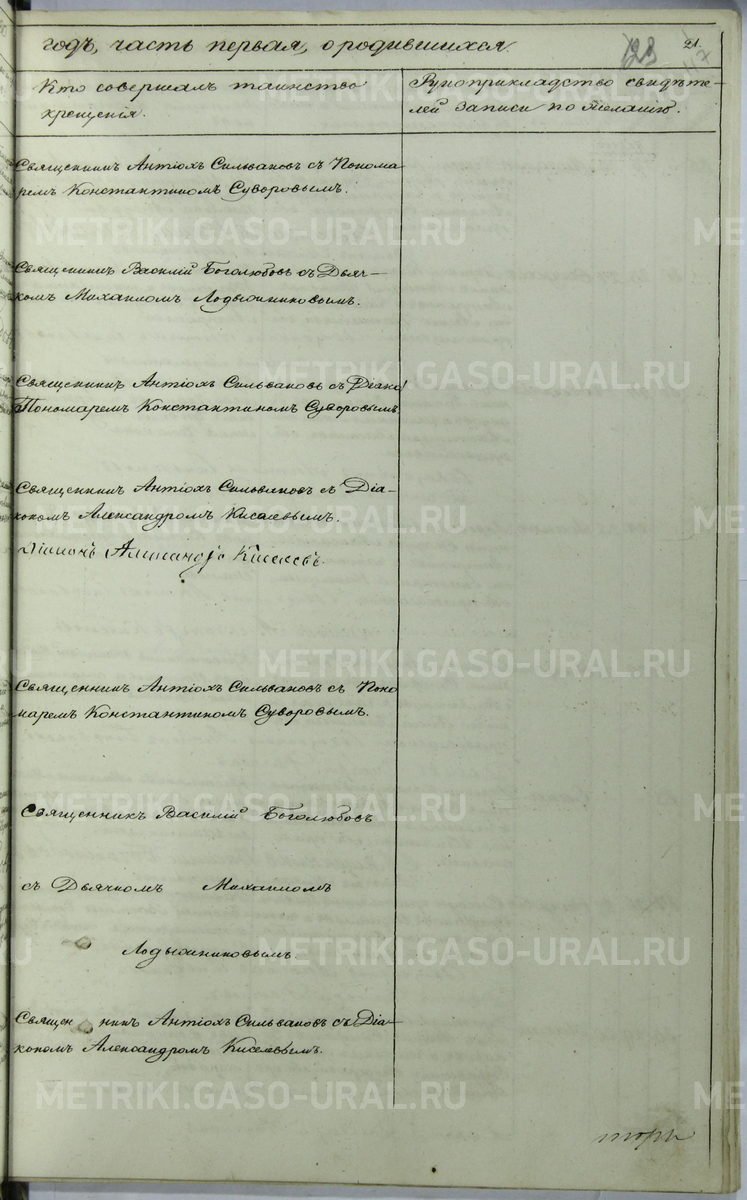 годъ, часть первая, о родившихся.
123
21.
Кто совершалъ таинство
крещенія.
Рукоприкладство свидѣте-
лей записи по желанію.
Священникъ Антіохъ Сильвановъ съ Понома
ремъ Константиномъ Суворовымъ.
Священникъ Василій Боголюбовъ съ Дьяч-
комъ Михаиломъ Лодыжниковымъ.
Священникъ Антіохъ Сильвановъ съ Діако
Пономаремъ Константиномъ Суворовымъ
Священникъ Антіохъ Сильвановъ съ Діа-
кономъ Александромъ Киселевымъ.
Діаконъ Александръ Киселевъ.
Священникъ Антіохъ Сильвановъ съ Поно
маремъ Константиномъ Суворовымъ.
Священникъ Василій Боголюбовъ
съ Дьячкомъ Михаиломъ
Лодыжниковымъ.
Священникъ Антіохъ Сильвановъ съ Діа-
кономъ Александромъ Киселевымъ.
METRIKI.GASO-URAL.RU
METRIKI.GASO-URAL.RU
METRIKI.GASO-URAL.RU
METRIKI.GASO-URAL.RU
METRIKI.GASO-URAL.RU
METRIKI.GASO-URAL.RU
METRIKI.GASO-URAL.RU
METRIKI.GASO-URAL.RU